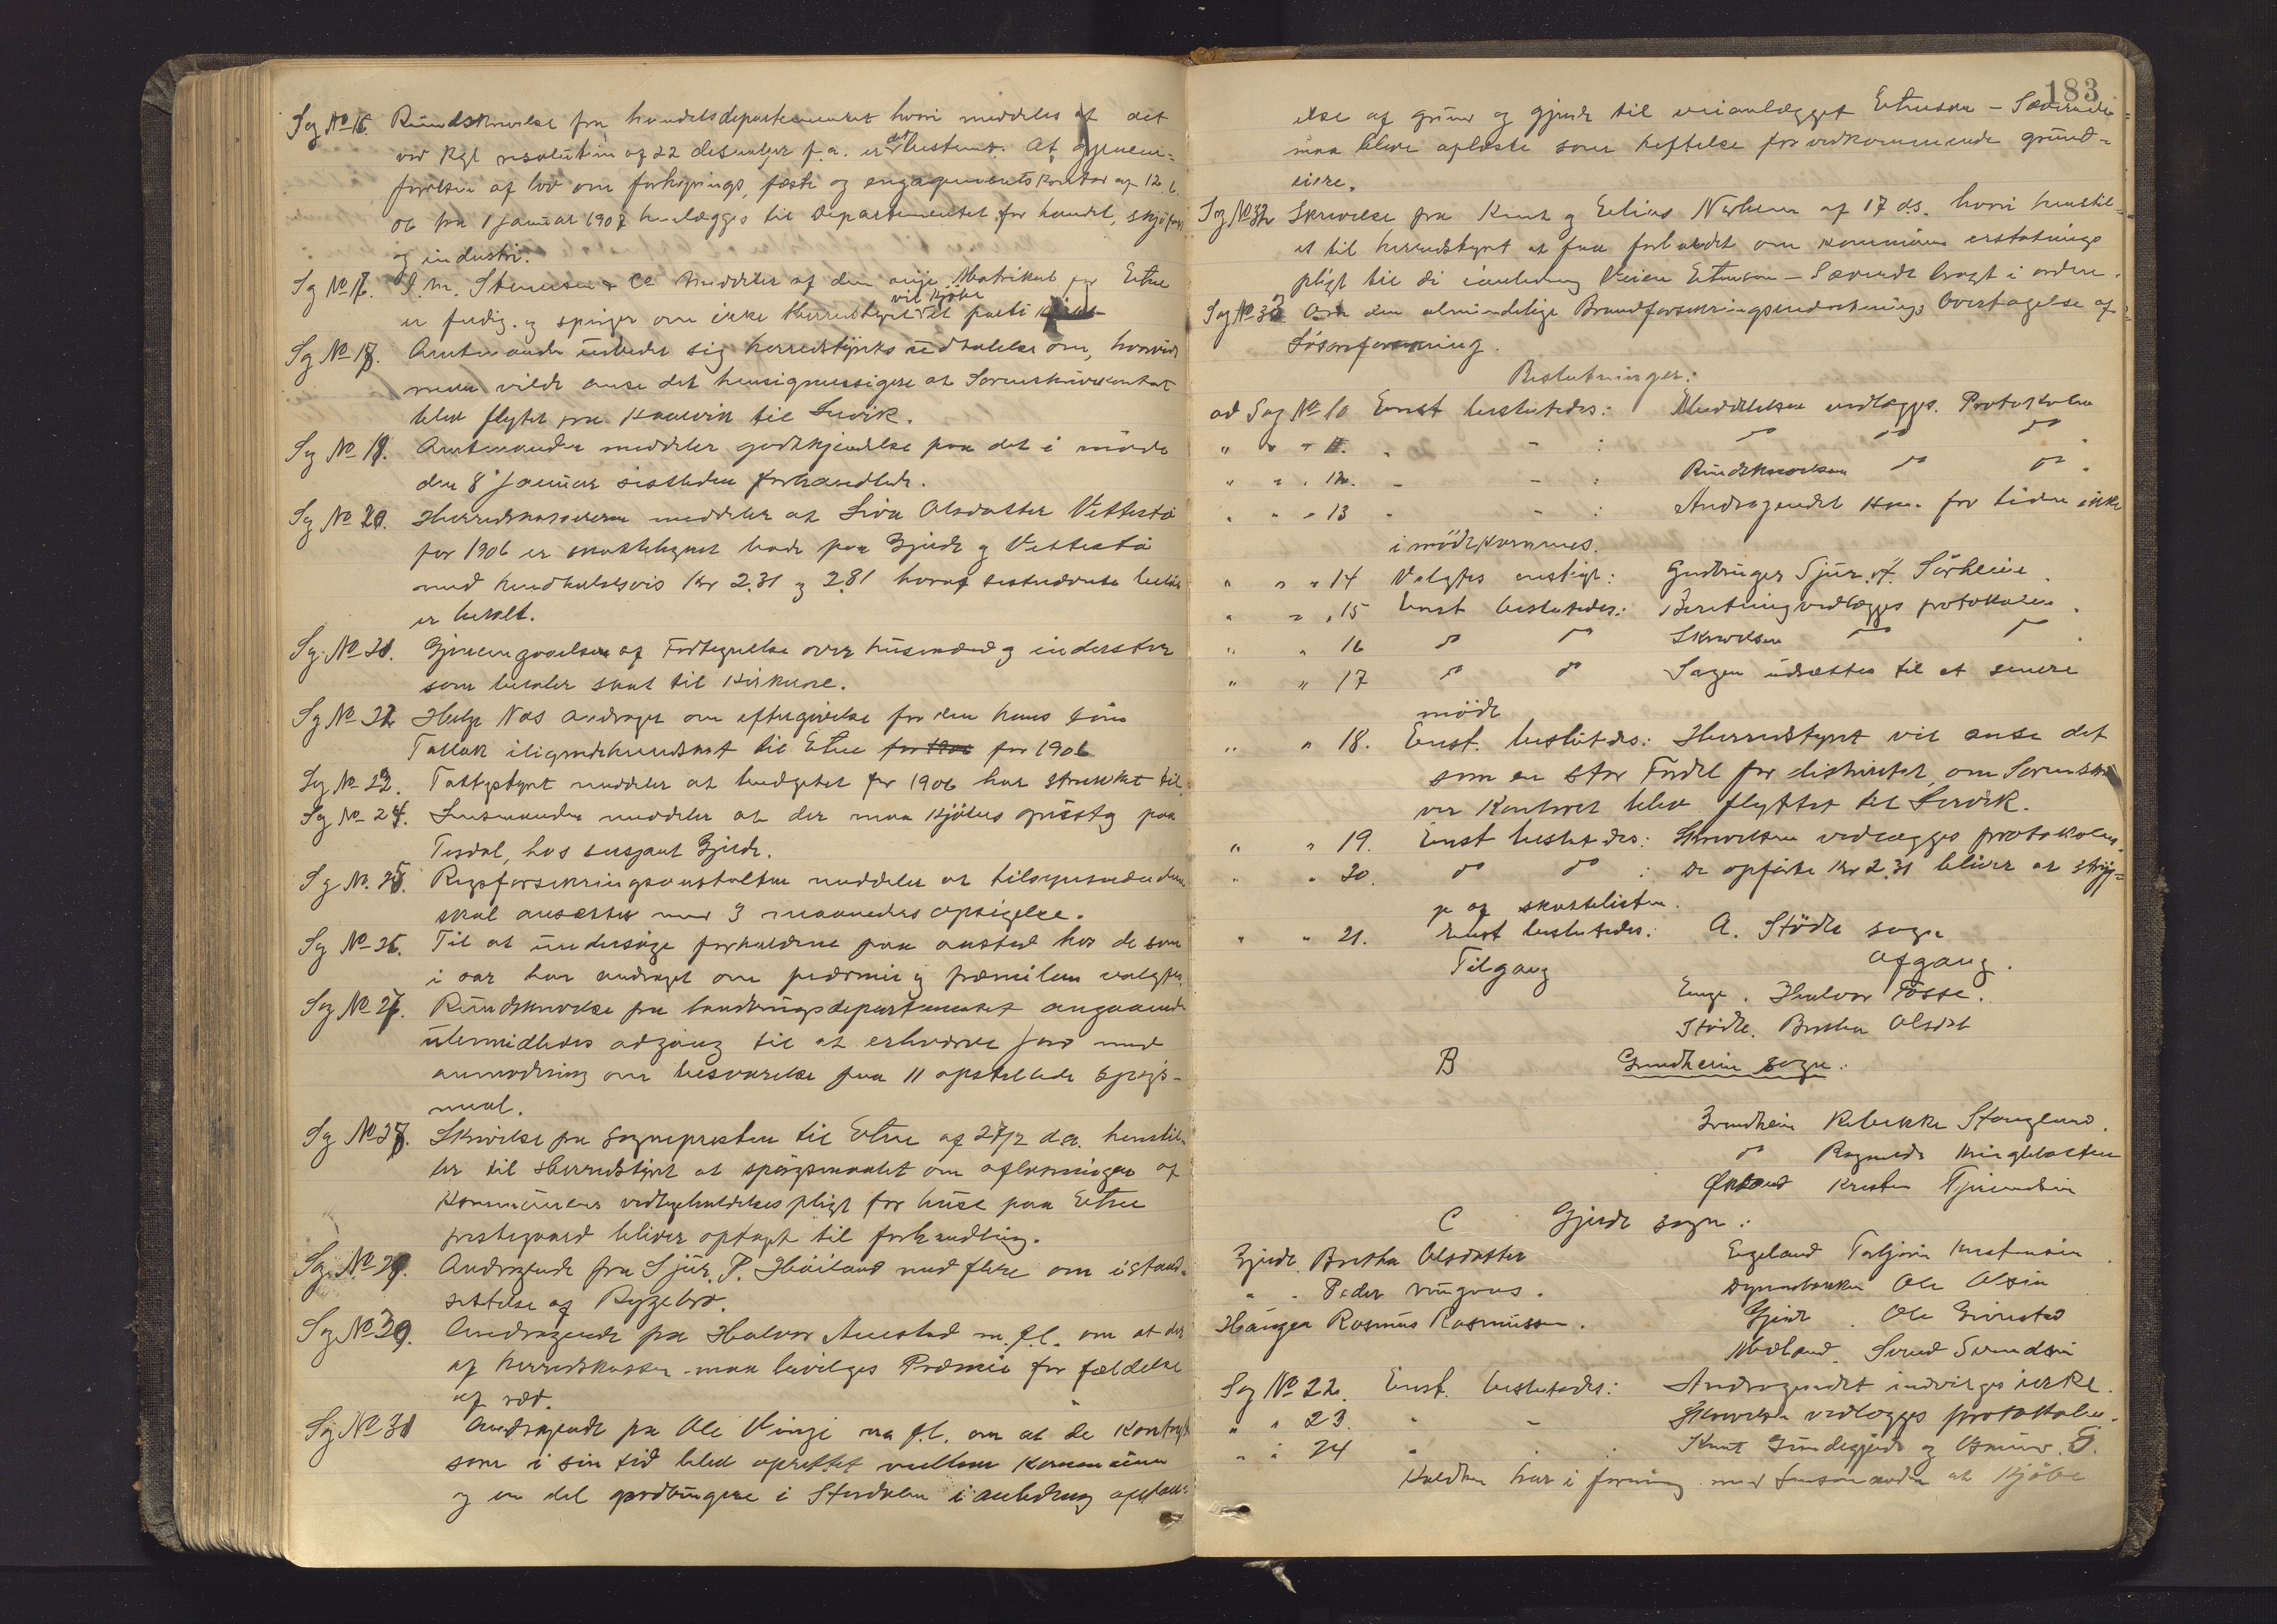 Sag No 16. Rundskrivelse fra handelsdepartementet hvori meddeles at det
ved Kgl resolution af 22 desember f.a. er det bestemt. At gjennem-
førelsen af lov om forhyrings, fæste og engagementskontor af 12
06 fra 1 januar 1907 henlægges til Departementet for handel, skjöfart
og industri.
Sag No 17. J. M. Stenersen & Co meddeler at den nye Matrikul for Etne
er ferdig. og spörger om ikke Herredstyret vil kjöbe et parti
Sag No 18. Amtmanden udbeder sig herredstyrets udtalelse om, hvorvidt
man vilde anse det hensigtmessigere at Sorenskriverkontoret
blev flyttet fra Kaarvik til Lervik.
Sag No 19. Amtmanden meddeler godkjendelse paa det i möde
den 8 januar sistleden forhandlede.
Sag No 20. Herredskassereren meddeler at Siva Olsdatter Vettestö
for 1906 er skattelignet baade paa Gjerde og Vettestö
med henholdsvis Kr 2.31 og 2.81 hvoraf sistnævnte belöb
er betalt.
Sag No 21. Gjennemgaaelse af Fortegnelse over husmænd og inderster
som betaler skat til Kirkerne.
Sag No 22 Helge Næs andrager om eftergivelse for den hans sön
Tallak ilignede herredskat til Etne for 1906 for 1906
Sag No 23. Fattigstyret meddeler at budgetet for 1906 har strukket til.
Sag No 24. Lensmanden meddeler at der maa kjöbes opvisstg paa
Tesdal, hos sersjant Gjerde.
Sag No. 25. Rigsforsikringsanstalten meddeler at tilsynsmændene
skal ansættes med 3 maaneders opsigelse.
Sag No 26. Til at undersöge forholdene paa aasted hos de som
i aar har andraget om præmie og premilaan valgtes
Sag No 27. Rundskrivelse fra landbrugsdepartementet angaaende
ubemidledes adgang til at erhverve jord med
anmodning om besvarelse paa 11 opstillede spörgs-
maal.
Sag No 28. Skrivelse fra sognepresten til Etne af 27/2 d.a. henstil-
ler til Herredstyret at spörgsmaalet om aflösningen af
Kommunens vedligeholdelsespligt for huse paa Etne
prestegaard bliver optaget til forhandling.
Sag No 29. Andragende fra Sjur P. Höiland med flere om istand-
settelse af Ryggebro.
Sag No 30. Andragende fra Halvor Amestad m. fl. om at der
af herredskassen maa bevilges Præmie for fældelse
af ræv.
Sag No 31 Andragende fra Ole Vinje m fl. om at de kontrakter
som i sin tid blev oprettet mellem kommunen
og en del gaardbrugere i Stordalen i anledning afstaa-
183
else af grund og gjerde til veianlægget Etneson - Sævareide
maa blive oplöste som heftelse for vedkommende grund-
eiere.
Sag No 32 Skrivelse fra Knut og Elias Nærheim af 17 ds. hvori henstil-
es til herredstyret at faa forholdet om kommunens erstatnings
pligt til di i anledning Veien Etneson - Sævareide bragt i orden.
Sag No 33. Om den almindelige Brandforsikringsindretnings Overtagelse af
Lösöreforsikring.
Beslutninger:
ad Sag No 10 Enst besluttedes: Meddelelsen vedlægges Protokolen
" " " 11. " - : do do do.
" " " 12. - - : Rundskrivelsen do do.
" " " 13 " - : Andragendet kan for tiden ikke
imödekommes.
" " " 14 Valgtes enstigt: Gaardbruger Sjur Sörheim.
" " " 15 Enst besluttedes: Beretning vedlægges protokolen.
" " 16 do do Skrivelsen do do.
" " 17 do do Sagen udsættes til et senere
möde
" " 18. Enst. besluttedes: Herredstyret vil anse det
som en stor Fordel for distriktet, om Sorenskri
ver Kontoret blev flyttet til Lervik.
" " 19. Enst besluttedes: Skrivelsen vedlægges protokolen.
" " 20. do do : De opförte Kr 2.31 bliver at stry-
ge af skattelisten.
" " 21. Enst besluttedes: A. Stödle sogn
Tilgang Afgang.
Enge. Halvor Fosse.
Stödle. Bertha Olsdt
B Grindheim sogn:
Grindheim Rebekka Stangeland.
do Ragnilde Kringlebotten
Östbö Kristen Tjerandsen
C Gjerde sogn:
Gjerde. Bertha Olsdatter Engeland Torbjörn Kristensen
" " Peder Magnus. Dyrnebakken Ole Olsen
Hauger Rasmus Rasmussen. Gjerde. Ole Grönstad
Mæland. Svend Svendsen
Sag No 22. Enst. besluttedes: Andragendet indvilges ikke.
" " 23. " - Skrivelsen vedlægges protokolen.
" " 24 " . Knut Grindegjerde og Gunnar E.
Kaldheim har i forening med lensmanden at kjöbe